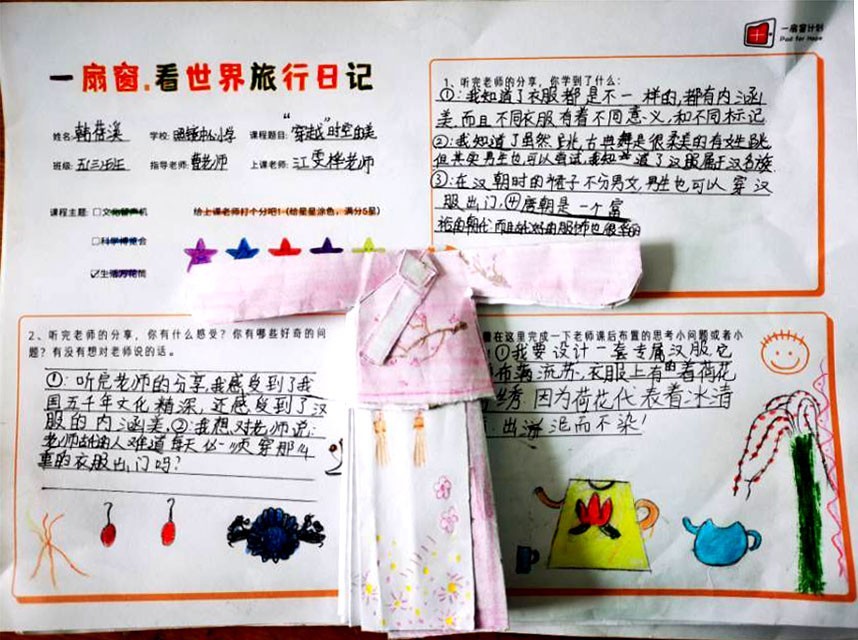 一扇窗计划
iPad for Hope
一扇窗.看世界旅行日记
姓名: 韩蓓溪 学校: 昭锤中心小学 课程题目: "穿越"时空的美
班级: 五(三)班 指导老师: 曹老师 上课老师: 江雯桦老师
课程主题: □文化留声机 给上课老师打个分吧!(给星星涂色,满分5星)
□科学博览会
☑生活万花筒
1、听完老师的分享,你学到了什么:
①:我知道了衣服都是不一样的,都有内涵
美,而且不同衣服有着不同意义,和不同标记
②:我知道了虽然跳古典舞是很柔美的有女生跳
但其实男生也可以尝试,我知道了汉服属于汉名族
③:在汉朝时的裙子不分男女,男生也可以穿汉
服出门,④唐朝是一个富
裕的朝代,而且
2、听完老师的分享,你有什么感受?你有哪些好奇的问
题?有没有想对老师说的话。
①:听完老师的分享,我感受到了我
国五千年文化精深,还感受到了汉
服的内涵美②:我想对老师说:
老师古代的人难道每天必须穿那么
重的衣服出门吗?
在这里完成一下老师课后布置的思考小问题或者小
①我要设计一套专属汉服,它
流苏,衣服上有着荷花
绣,因为荷花代表着:冰清
出淤泥而不染!